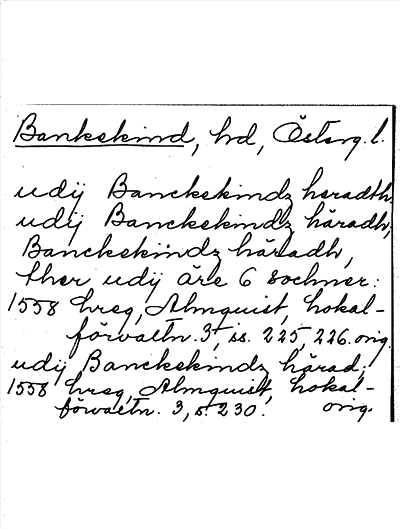 Bankekind, hd, Österg. l.
udij Banckekindz heradth
udij Banckekindz häradh,
Banckekindz häradh,
ther udij äre 6 sochner:
1558 hreg, Almquist, Lokal-
förvaltn. 3, ss. 225, 226. orig.
udij Banckekindz härad;
1558 hreg, Almquist, Lokal-
förvaltn. 3, s. 230. orig.